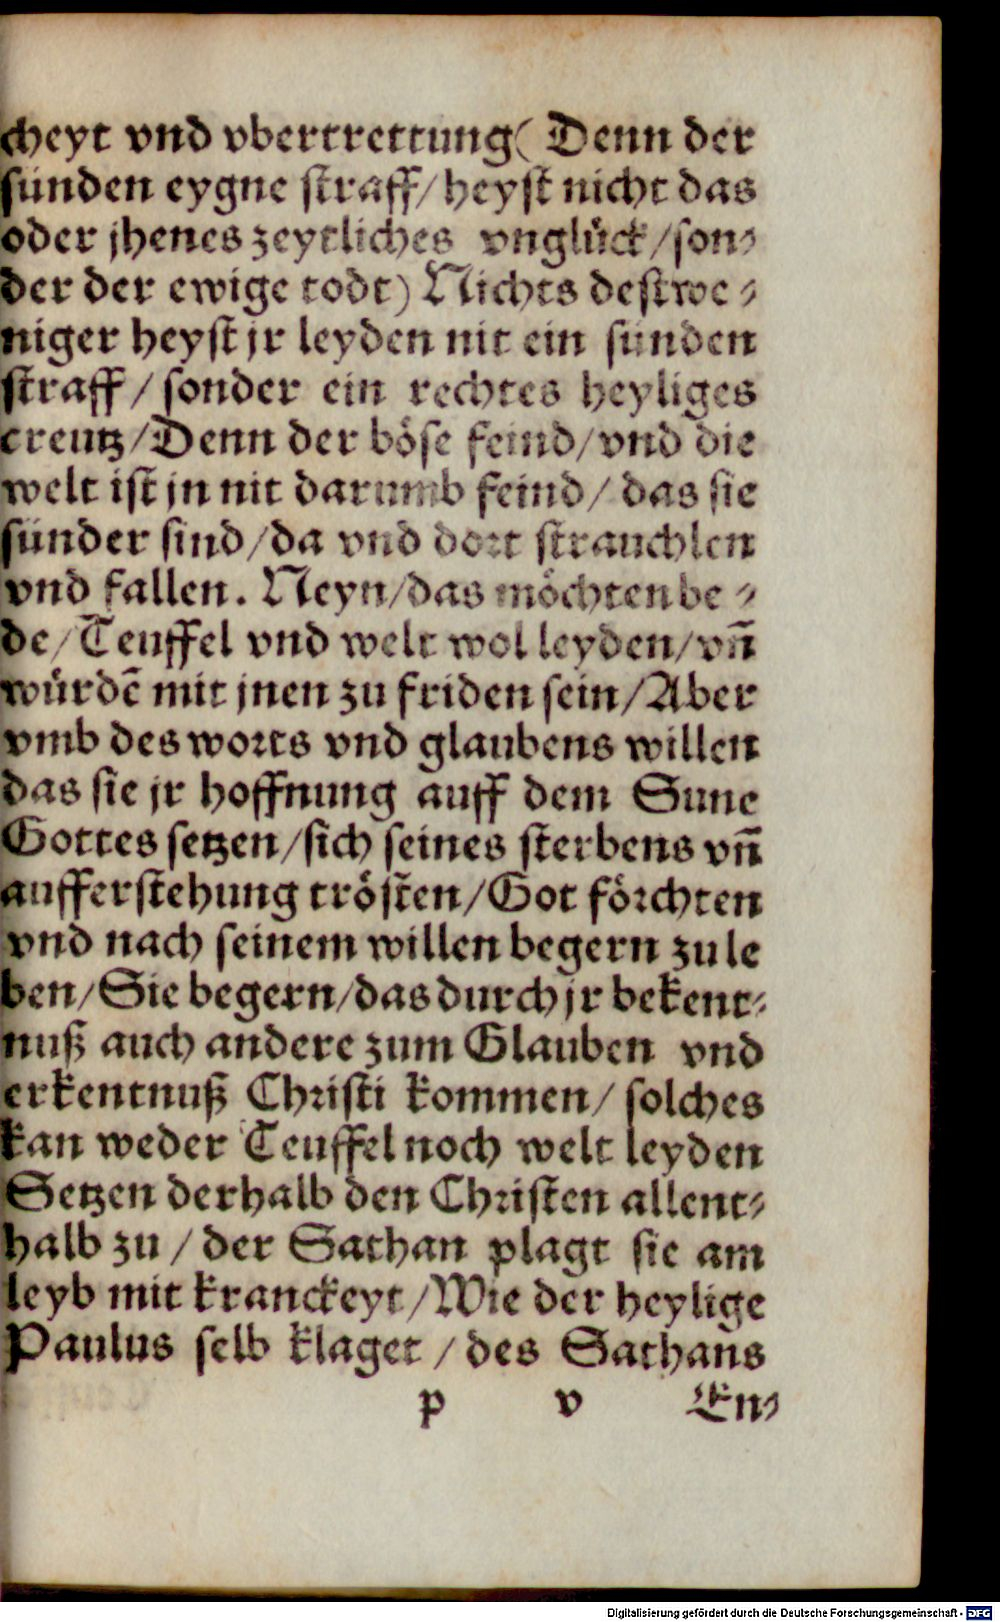 cheyt vnd vbertrettung( Denn der
sünden eygne straff/ heyst nicht das
oder jhenes zeytliches vnglück/son⸗
der der ewige todt) Nichts destwe⸗
niger heyst jr leyden nit ein sünden
straff/ sonder ein rechtes heyliges
creutz/Denn der böse feind/vnd die
welt ist jn nit darumb feind/ das sie
sünder sind/da vnd dort strauchlen
vnd fallen. Neyn/das möchten be⸗
de/Teuffel vnd welt wol leyden/vñ
würdē mit jnen zu friden sein/Aber
vmb des worts vnd glaubens willen
das sie jr hoffnung auff dem Sune
Gottes setzen/sich seines sterbens vñ
aufferstehung trösten/Got förchten
vnd nach seinem willen begern zu le
ben/Sie begern/das durch jr bekent⸗
nuß auch andere zum Glauben vnd
erkentnuß Christi kommen/ solches
kan weder Teuffel noch welt leyden
Setzen derhalb den Christen allent⸗
halb zu / der Sathan plagt sie am
leyb mit kranckeyt/Wie der heylige
Paulus selb klaget /des Sathans
p v En⸗
Digitalisierung gefördert durch die Deutsche Forschungsgemeinschaft - DFG